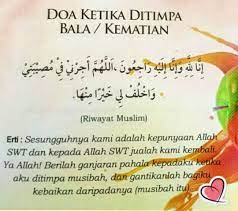 DOA KETIKA DITIMPA
BALA / KEMATIAN
إِنَّا لِلَّهِ وَإِنَّا إِلَيْهِ رَاجِعُونَ، اَللَّهُمَّ أْجُرْنِيْ فِيْ مُصِيْبَتِيْ
وَاخْلُفْ لِيْ خَيْرًا مِنْهَا.
(Riwayat Muslim)
Erti : Sesungguhnya kami adalah kepunyaan Allah
SWT dan kepada Allah SWT jualah kami kembali.
Ya Allah! Berilah ganjaran pahala kepadaku ketika
aku ditimpa musibah, dan gantikanlah bagiku
kebaikan daripadanya (musibah itu).